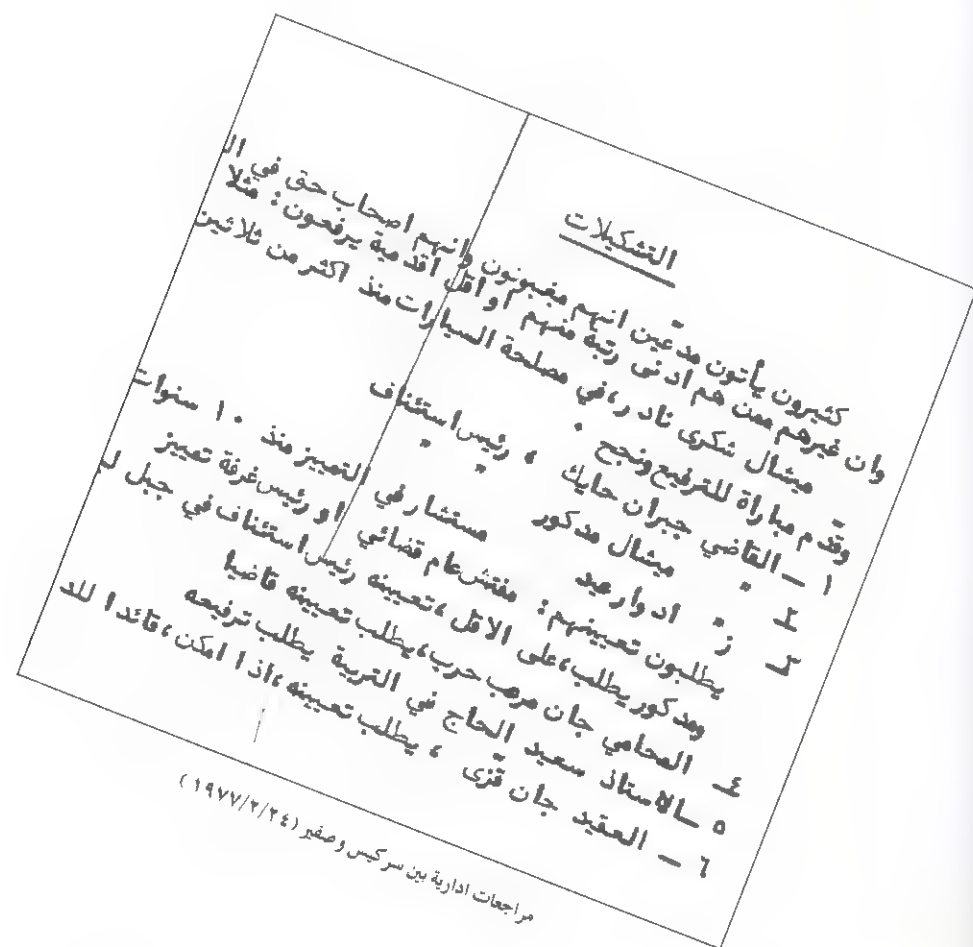 التشكيلات
كثيرون يأتون مدّعين انهم مغبونون وانهم اصحاب حق في
وان غيرهم ممن هم ادنى رتبة منهم او اقل اقدمية يرفعون : مثلا
ميشال شكري نادر، في مصلحة السيارات منذ اكثر من ثلاثين
وقدّم مباراة للترفيع ونجح .
١ – القاضي جبران حايك ، رئيس استئناف
٢ – " ميشال مدكور " "
٣ – " ادوار عيد مستشار في التمييز منذ ١٠ سنوات
يطلبون تعيينهم : مفتش عام قضائي او رئيس غرفة تمييز
ومدكور يطلب، على الاقل، تعيينه رئيس استئناف في جبل
٤ – المحامي جان مرهب حرب، يطلب تعيينه قاضيا
٥ – الاستاذ سعيد الحاج في التربية يطلب ترفيعه
٦ – العقيد جان قزّى ، يطلب تعيينه، اذا امكن، قائدا
مراجعات ادارية بين سركيس وصفير (١٩٧٧/٢/٢٤)